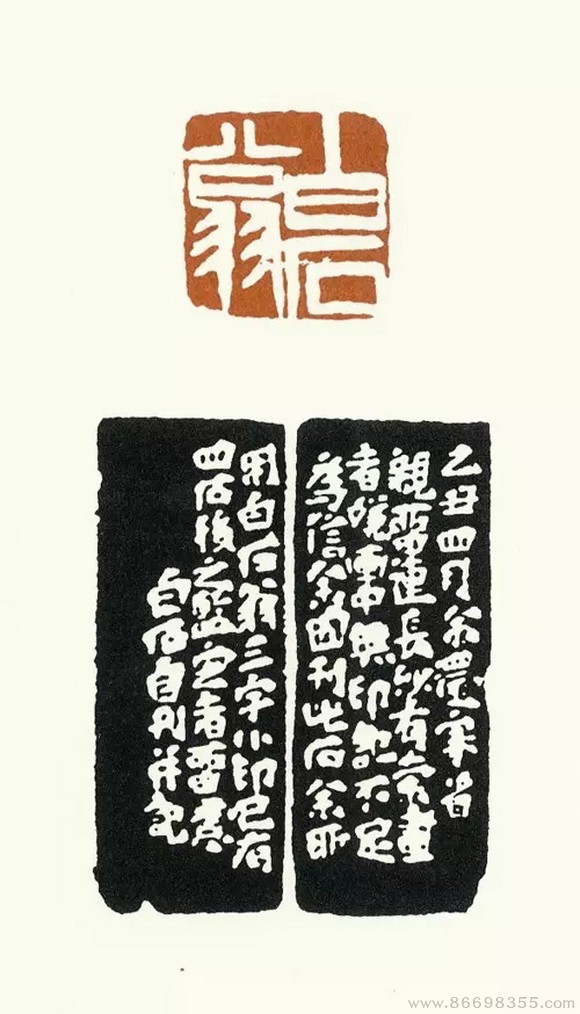 白石翁
乙丑四月余還家省
親留連長沙有索畫
者嫌畫無印記不足
為信余因刊此石余所
用白石翁三字小印已有
四石後之鑒定者留意
白石自刊并記
www.86698355.com